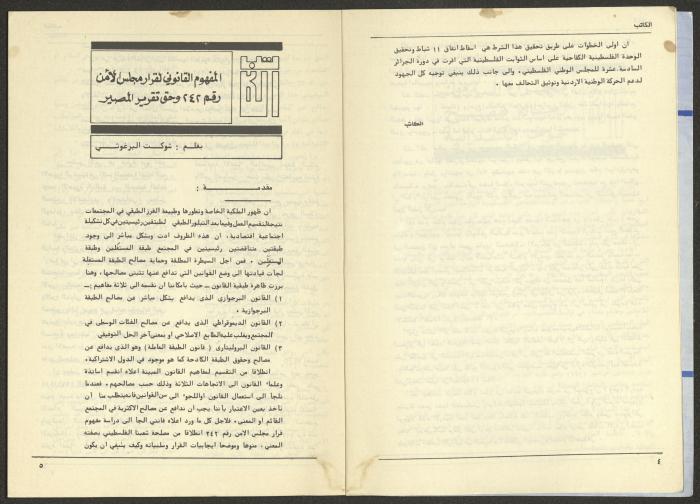 الكاتب
ان اولى الخطوات على طريق تحقيق هذا الشرط هي اسقاط اتفاق ١١ شباط وتحقيق
الوحدة الفلسطينية الكفاحية على اساس الثوابت الفلسطينية التي اقرت في دورة الجزائر
السادسة عشرة للمجلس الوطني الفلسطيني ، والى جانب ذلك ينبغي توجيه كل الجهود
لدعم الحركة الوطنية الاردنية وتوثيق التحالف معها .
الكاتب
٤
الكاتب
المفهوم القانوني لقرار مجلس الأمن
رقم ٢٤٢ وحق تقرير المصير
بقلم : شوكت البرغوثي
مقدمـــــة :
ان ظهور الملكية الخاصة وتطورها وطبيعة الفرز الطبقي في المجتمعات
نتيجة لتقسيم العمل وفيما بعد التبلور الطبقي لطبقتين رئيسيتين في كل تشكيلة
اجتماعية اقتصادية ، ان هذه الظروف ادت وبشكل مباشر الى وجود
طبقتين متناقضتين رئيسيتين في المجتمع طبقة المستغلين وطبقة
المستغلين . فمن اجل السيطرة المطلقة وحماية مصالح الطبقة المستغلة
لجأت قيادتها الى وضع القوانين التي تدافع عنها تتبنى مصالحها ، وهنا
برزت ظاهرة طبقية القانون ــ حيث بامكاننا ان نقسمه الى ثلاثة مفاهيم :ــ
١) القانون البرجوازي الذي يدافع بشكل مباشر عن مصالح الطبقة
البرجوازية .
٢) القانون الديموقراطي الذي يدافع عن مصالح الفئات الوسطى في
المجتمع ويغلب عليه الطابع الاصلاحي او بمعنى آخر الحل التوفيقي
٣) القانون البروليتاري ( قانون الطبقة العاملة ) وهو الذي يدافع عن
مصالح وحقوق الطبقة الكادحة كما هو موجود في الدول الاشتراكية .
انطلاقا من التقسيم لمفاهيم القانون المبينة اعلاه انقسم اساتذة
وعلماء القانون الى الاتجاهات الثلاثة وذلك حسب مصالحهم . فعندما
نلجأ الى استعمال القانون او اللجوء الى القوانين فانه يتطلب منا أن
نأخذ بعين الاعتبار بأننا يجب ان ندافع عن مصالح الاكثرية في المجتمع
القائم او المعني ، فلاجل كل ما ورد اعلاه فانني الجأ الى دراسة مفهوم
قرار مجلس الامن رقم ٢٤٢ انطلاقا من مصلحة شعبنا الفلسطيني بصفته
المعني ، منوها وموضحا ايجابيات القرار وسلبياته وكيف ينبغي ان يكون
٥